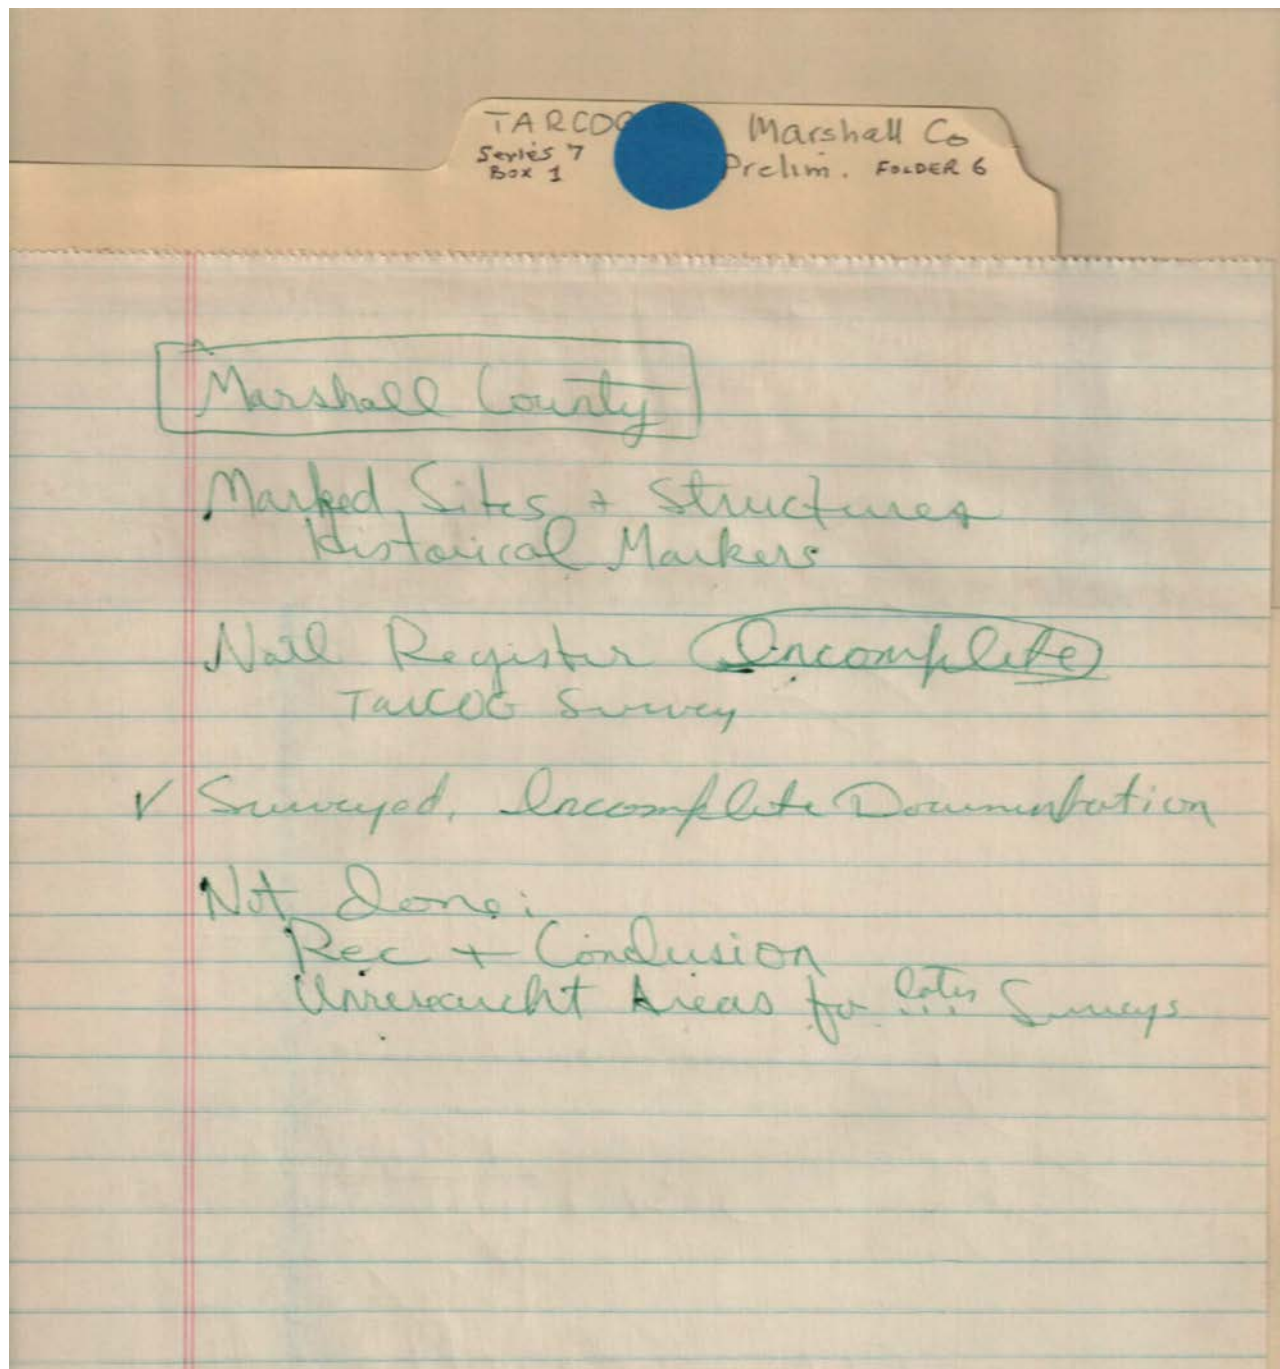 TARCOG Marshall Co
Series 7 Prelim. FOLDER 6
Box 1
Marshall County
Marked Sites + Structures
Historical Markers
Natl Register Incomplete
TARCOG Survey
✓ Surveyed, Incomplete Documentation
Not done:
Rec + Conclusion
Unresearcht Areas for later Surveys